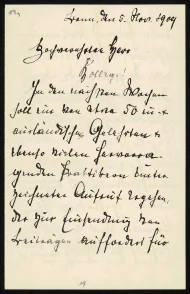 Bonn, den 5. Nov. 1909
Hochverehrter Herr
Kollege!
In den nächsten Wochen
soll ein von etwa 50 in- &
ausländischen Gelehrten &
ebenso vielen hervorra-
genden Praktikern unter-
zeichneter Aufruf ergehen,
der zur Einsendung von
Beiträgen auffordert für